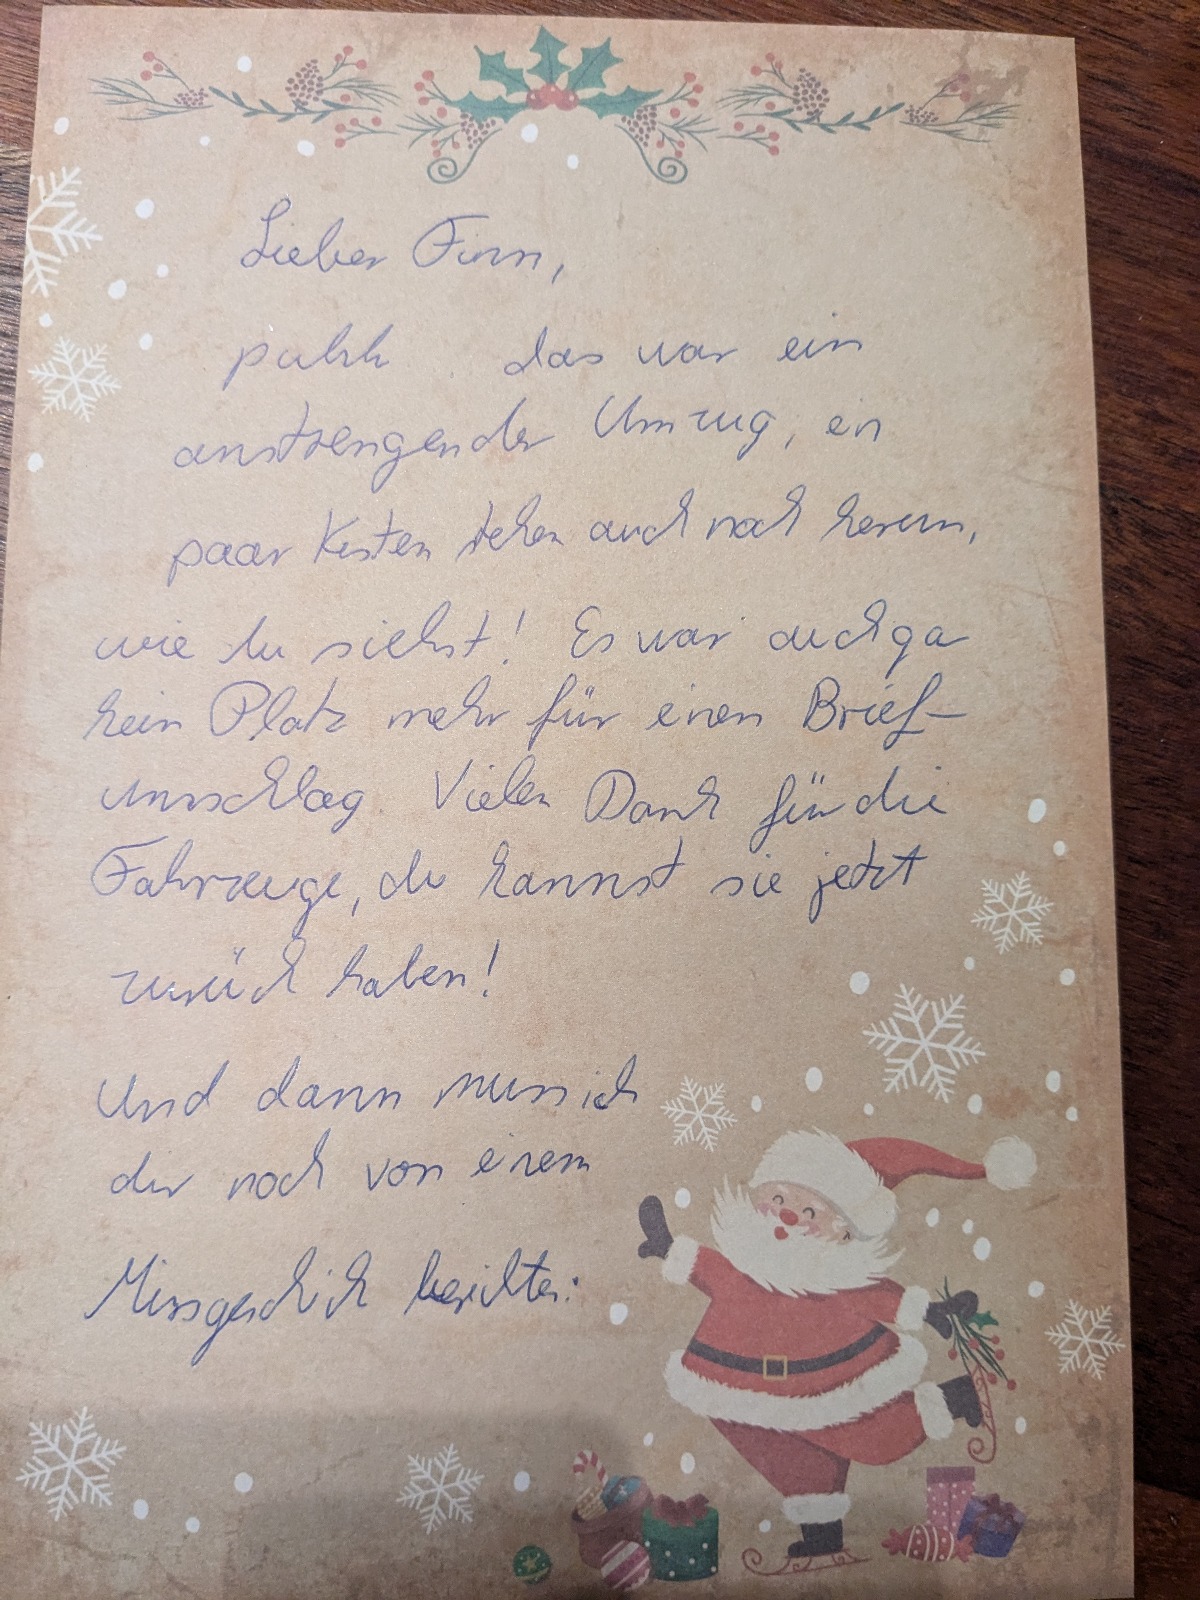 Lieber Finn,
puhh das war ein
anstrengender Umzug, ein
paar Kisten stehen auch noch herum,
wie du siehst! Es war auch ga
kein Platz mehr für einen Brief-
umschlag. Vielen Dank für die
Fahrzeuge, du kannst sie jetzt
zurück haben!
Und dann muss ich
dir noch von einem
Missgeschick berichten: